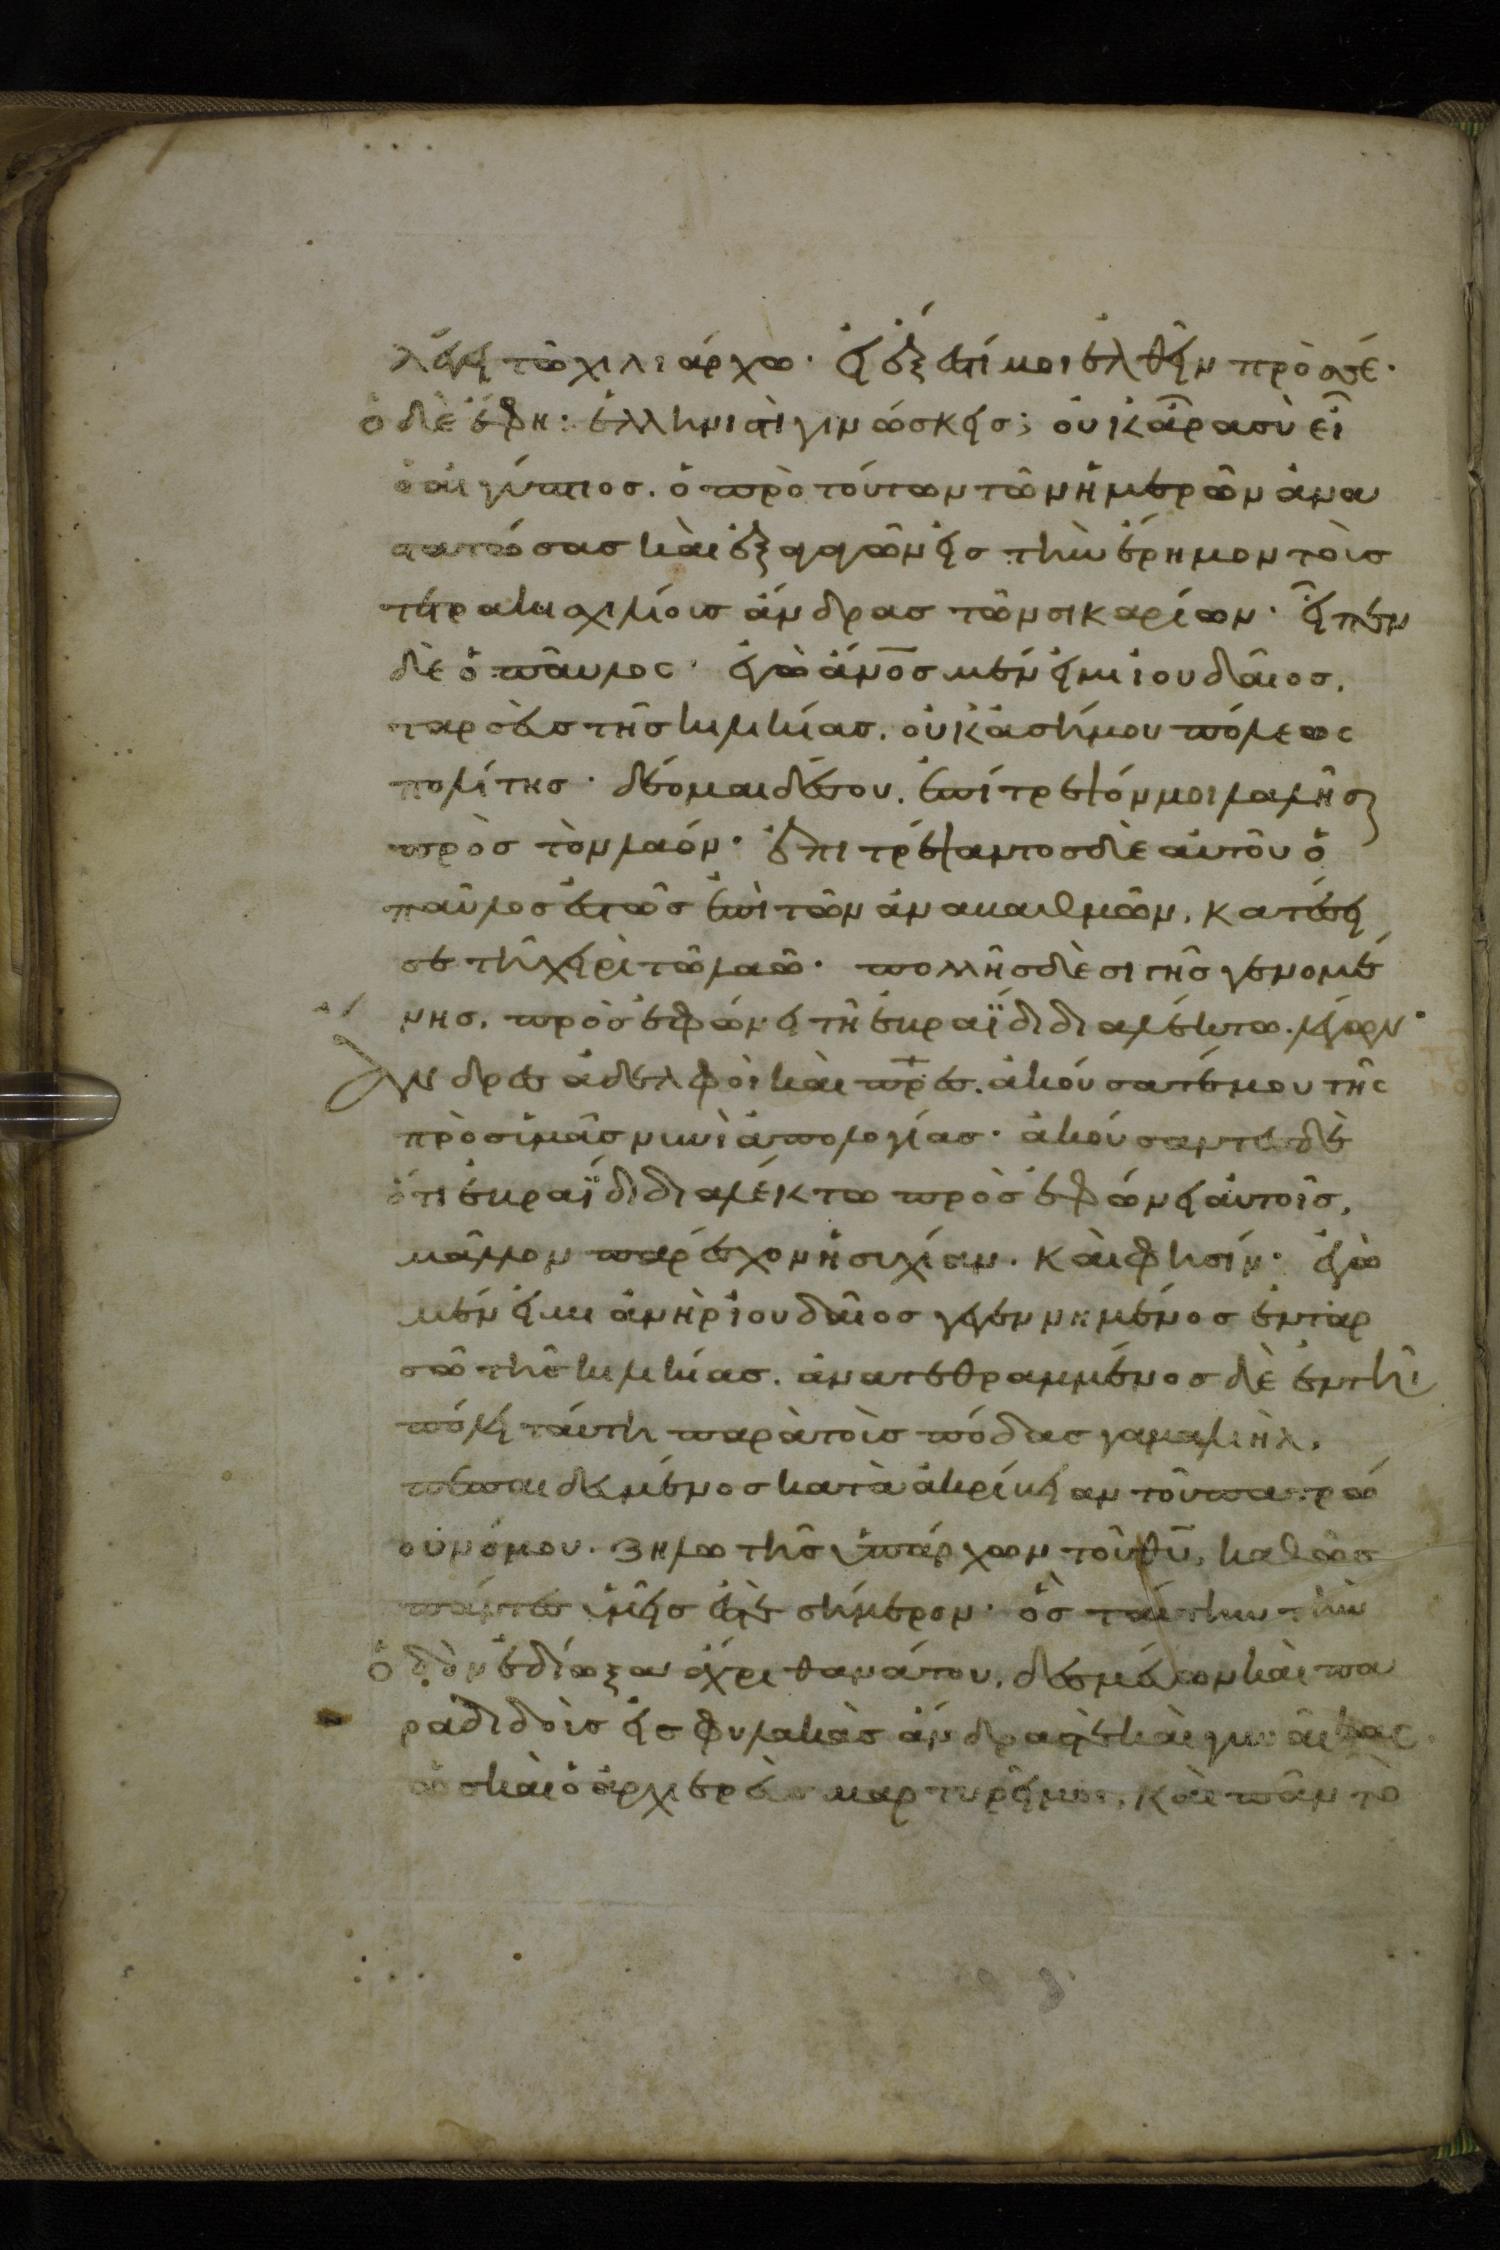 λέγει τῶ χιλιάρχω· εἰ ἔξεστί μοι ἐλθεῖν πρὸσ σέ·
ὁ δὲ ἔφη· ἑλληνιστὶ γινώσκεισ; οὐκ ἄρα σὺ εἶ
ὁ αἰγύπτιοσ. ὁ πρὸ τούτων τῶν ἡμερῶν ἀνα
στατώσασ καὶ ἐξαγαγῶν εἰσ τὴν ἔρημον τοὺσ
τετρακισχιλίουσ ἄνδρασ τῶν σικαρίων· εἶπεν
δὲ ὁ παῦλοσ· ἐγὼ ἄν̅οσ μέν εἰμι ἰουδαῖοσ,
ταρσεὺσ τῆσ κιλικίασ. οὐκ ἀσήμου πόλεωσ
πολίτησ· δέομαι δέ σου. ἐπίτρεψόν μοι λαλῆσαι
πρὸσ τὸν λαόν· ἐπιτρέψαντοσ δὲ αὐτοῦ ὁ
παῦλοσ ἑστὼσ ἐπὶ τῶν ἀναβαθμῶν, κατέσει
σε τῆ χειρὶ τῶ λαῶ· πολλῆσ δὲ σιγῆσ γενομέ
νησ, προσεφώνει τῆ ἑβραΐδι διαλέκτω. λέγων·
Ανδρεσ ἀδελφοὶ καὶ πρ̅εσ. ἀκούσατέ μου τῆσ
πρὸσ ὑμᾶσ νυνὶ ἀπολογίασ· ἀκούσαντεσ δὲ
ὅτι ἑβραΐδι διαλέκτω προσεφώνει αὐτοῖσ,
μᾶλλον παρέσχον ἡσυχίαν. καὶ φησίν· ἐγὼ
μέν εἰμι ἀνὴρ ἰουδαῖοσ γεγεννημένοσ ἐν ταρ
σῶ τῆσ κιλικίασ. ἀνατεθραμμένοσ δὲ ἐν τῆ
πόλει ταύτη παρὰ τοὺσ πόδασ γαμαλιὴλ,
πεπαιδευμένοσ κατὰ ἀκρίβειαν τοῦ πατρώ
ου νόμου. ζηλωτὴσ ὑπάρχων τοῦ θυ̅, καθὼσ
πάντεσ ὑμεῖσ ἐστὲ σήμερον· ὃσ ταύτην τὴν
ὁδὸν ἐδίωξα ἄχρι θανάτου, δεσμεύων καὶ πα
ραδιδοὺσ εἰσ φυλακὰσ ἄνδρασ τε καὶ γυναῖκασ.
ὡσ καὶ ὁ ἀρχιερεὺσ μαρτυρεῖ μοι, καὶ πᾶν τὸ